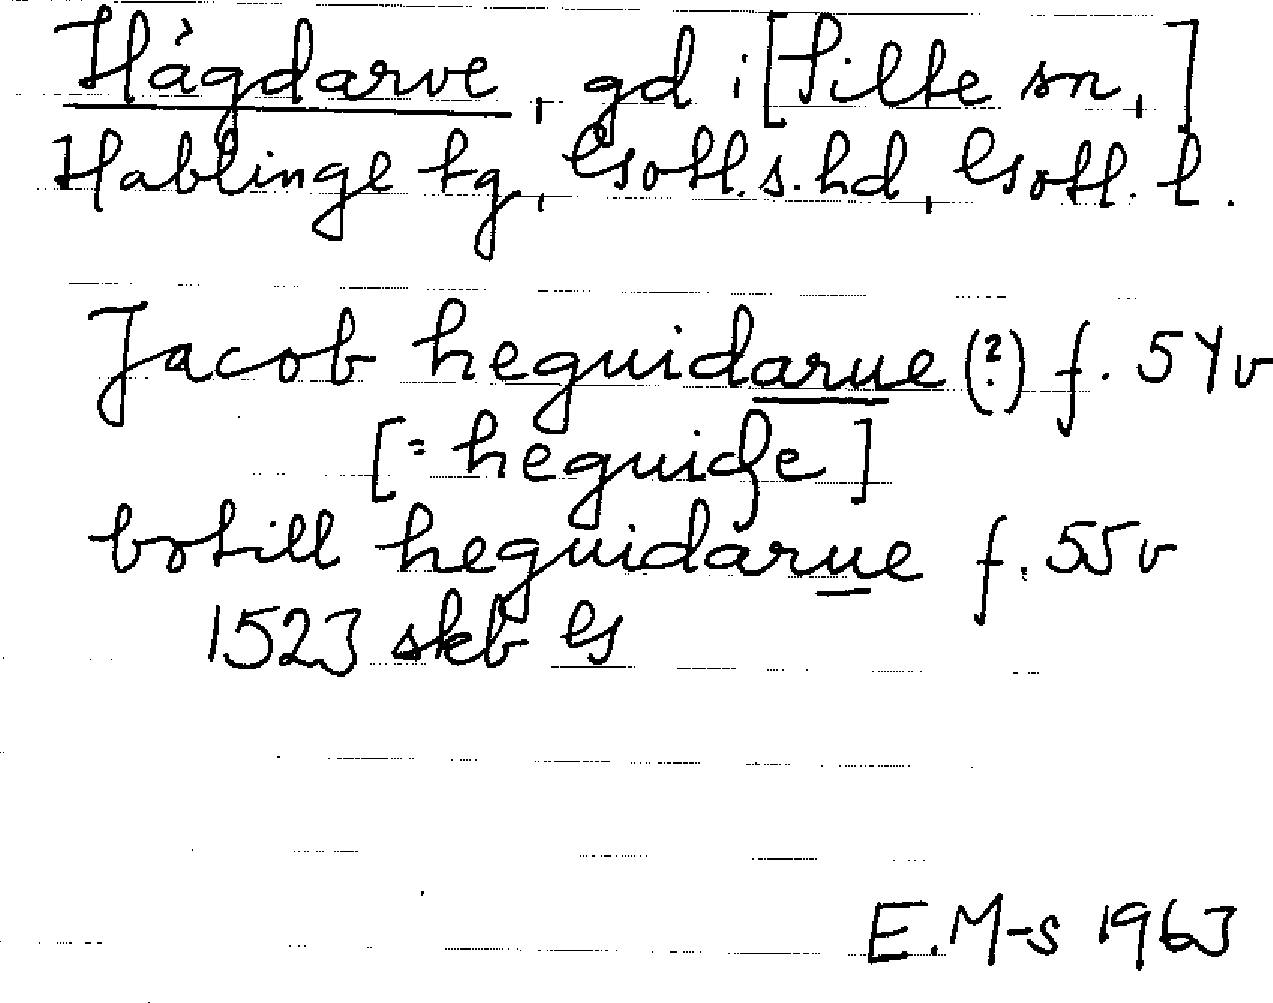 Hágdarve, gd i [Silte sn,]
Hablinge tg, Gotl. s. hd, Gotl. l.
Jacob heguidarue (?) f. 54v
[= heguide]
botill heguidarue f. 55v
1523 skb G
E. M-s 1963